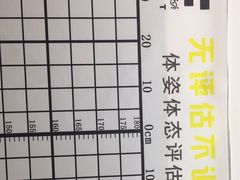 无评估不训
体姿体态评估
20
10
0cm
10
150
160
170
180